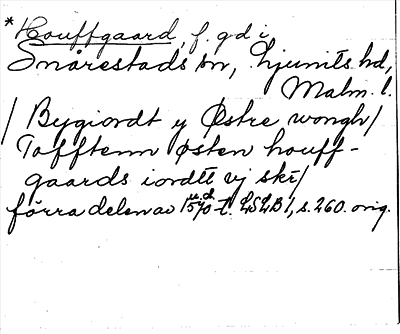 *Houffgaard, f. gd i
Snårestads sn, Ljunits hd,
Malm. l.
/ Bygiordt y Østre wongh /
Tofftenn østen houff-
gaards iordtt vj skr /
förra delen av 15 0-t. LSLB 1, s. 260. orig.